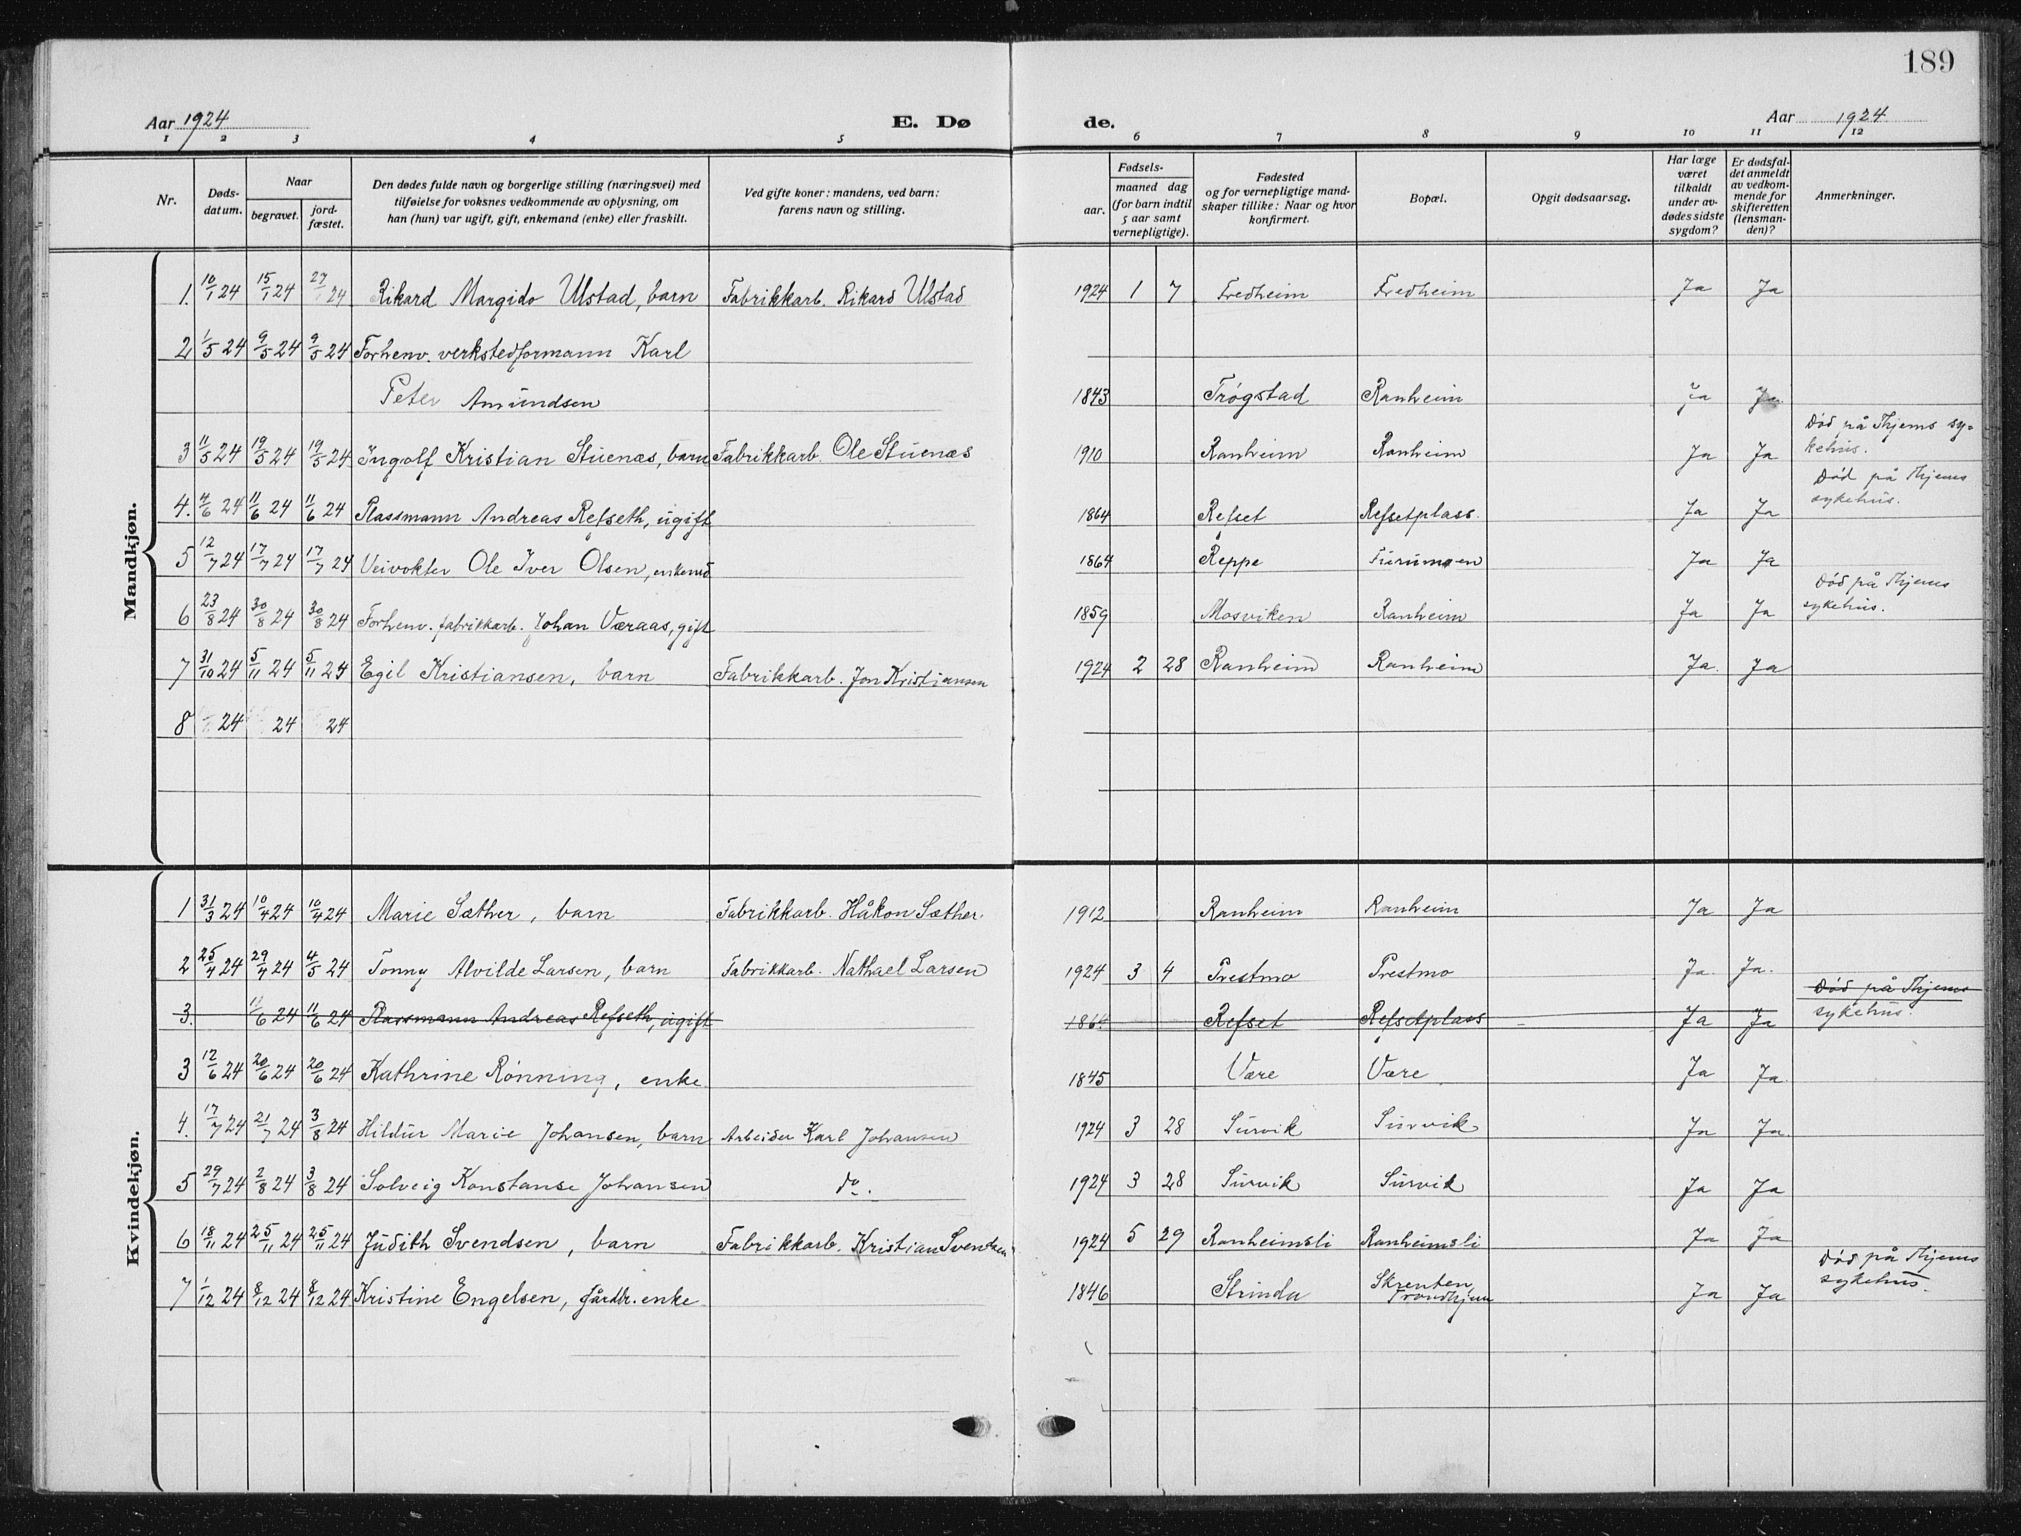 189
Aar 1924 E. Dø de. Aar 1924
1 2 3 4 5 6 7 8 9 10 11 12
Nr. Døds-datum. Naar begravet. jord-fæstet. Den dødes fulde navn og borgerlige stilling (næringsvei) med tilføielse for voksnes vedkommende av oplysning, om han (hun) var ugift, gift, enkemand (enke) eller fraskilt. Ved gifte koner: mandens, ved barn: farens navn og stilling. Fødsels- aar. maaned dag (for barn indtil 5 aar samt vernepligtige). Fødested og for vernepligtige mand-skaper tillike: Naar og hvor konfirmert. Bopæl. Opgit dødsaarsag. Har læge været tilkaldt under av-dødes sidste sygdom? Er dødsfal-det anmeldt av vedkom-mende for skifteretten (lensman-den)? Anmerkninger.
Mandkjøn.
1. 10/1 24 15/1 24 27/ 24 Rikard Margido Ulstad, barn Fabrikkarb. Rikard Ulstad 1924 1 7 Fredheim Fredheim Ja Ja
2 1/5 24 9/5 24 9/5 24 Forhenv. verkstedformann Karl
Peter Amundsen 1843 Trøgstad Ranheim Ja Ja
3 11/5 24 19/5 24 19/5 24 Ingolf Kristian Stuenæs, barn Fabrikkarb. Ole Stuenæs 1910 Ranheim Ranheim Ja Ja Död på Thjems sy-kehus.
4. 4/6 24 11/6 24 11/6 24 Plassmann Andreas Refseth, ugift 1864 Refset Refsetplass. Ja Ja Död på Thjems sykehus.
5 12/7 24 17/7 24 17/7 24 Veivokter Ole Iver Olsen, enkemd 1864 Reppe Furumoen Ja Ja
6 23/8 24 30/8 24 30/8 24 Forhenv. fabrikkarb. Johan Væraas, gift 1859 Mosviken Ranheim Ja Ja Död på Thjems sykehus.
7 31/10 24 5/11 24 5/11 24 Egil Kristiansen, barn Fabrikkarb. Jon Kristiansen 1924 2 28 Ranheim Ranheim Ja. Ja
8 24 24 24
Kvindekjøn.
1 31/3 24 10/4 24 10/4 24 Marie Sæther, barn Fabrikkarb. Håkon Sæther. 1912 Ranheim Ranheim Ja Ja
2 25/4 24 29/4 24 4/5 24 Tonny Alvilde Larsen, barn Fabrikkarb. Nathael Larsen 1924 3 4 Prestmo Prestmo Ja. Ja.
3. 11/6 24 11/6 24 Plassmann Andreas Refseth, ugift 1864 Refset Refsetplass Ja Ja Död på Thjems sykehus.
3 12/6 24 20/6 24 20/6 24 Kathrine Rønning, enke 1845 Være Være Ja Ja.
4. 17/7 24 21/7 24 3/8 24 Hildur Marie Johansen, barn Arbeider Karl Johansen 1924 3 28 Survik Survik Ja Ja.
5 29/7 24 2/8 24 3/8 24 Solveig Konstanse Johansen do. 1924 3 28 Survik Survik Ja Ja
6 18/11 24 25/11 24 25/11 24 Judith Svendsen, barn Fabrikkarb. Kristian Svendsen 1924 5 29 Ranheimsli Ranheimsli Ja Ja
7 1/12 24 8/12 24 8/12 24 Kristine Engelsen, gårdbr. enke 1846 Strinda Skrenten Trondhjem Ja Ja Död på Thjems sykehus.